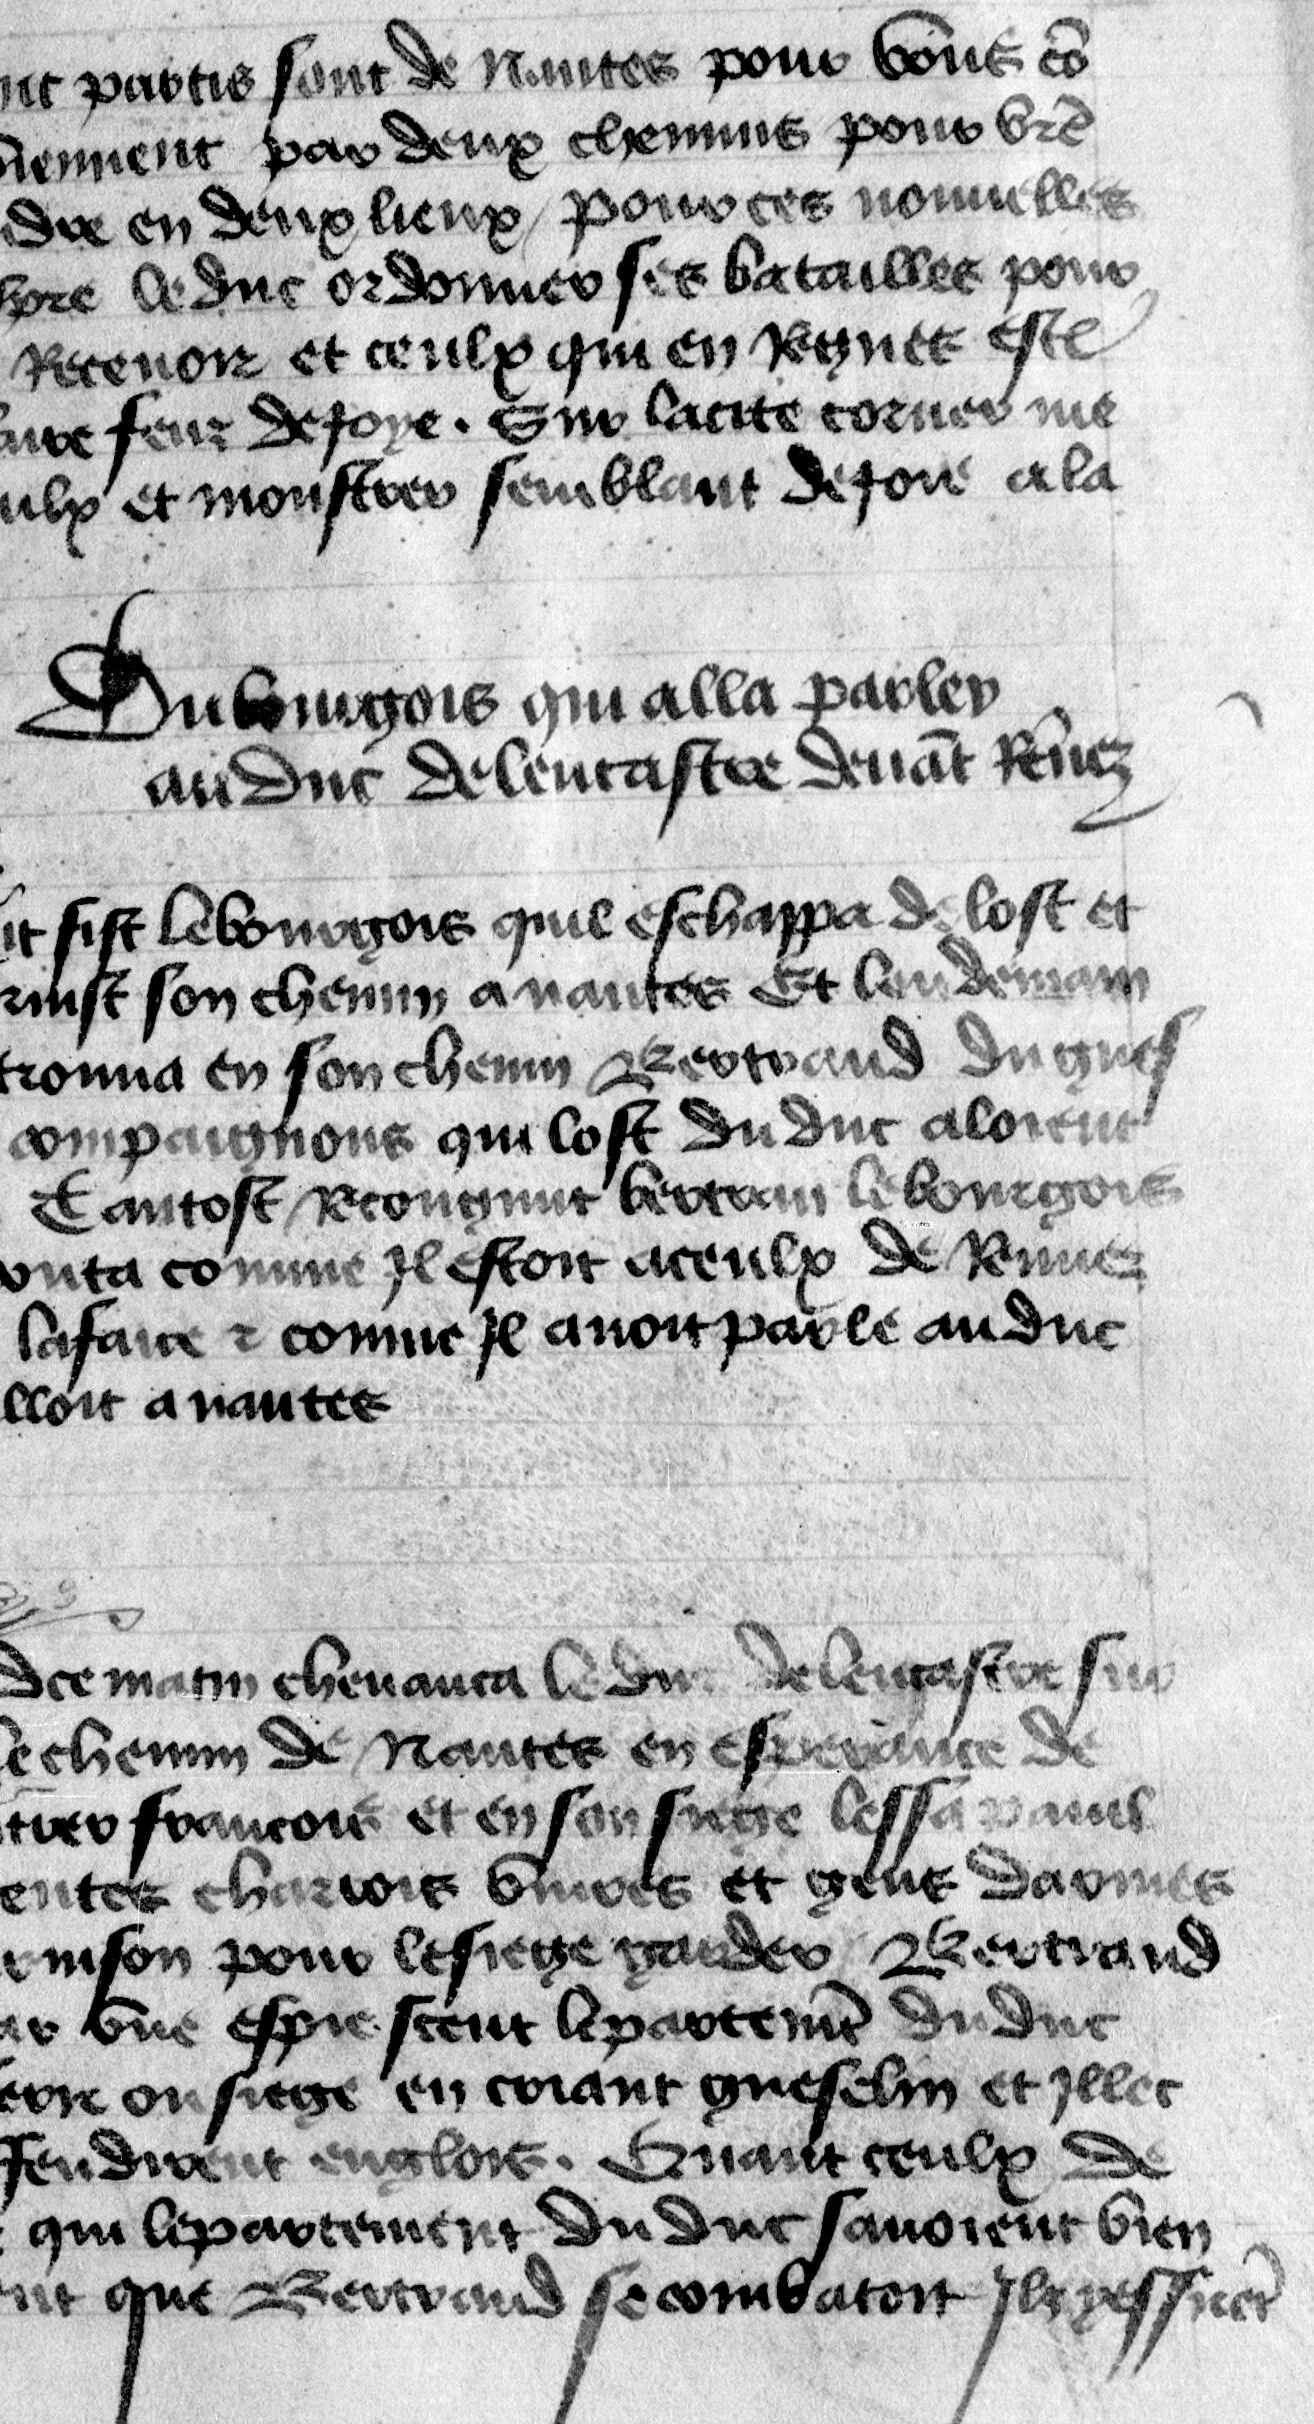 nt partis sont de Nantes pour vo͞us co͞
viennent par deux chemins pour bre͞
dre en deux lieux / pour ces nouuelles
le duc ordonner ses batailles pour
Receuoir et ceulx qui en Regnes este
aire feux de joye . Sur la cite corner me
ulx et monstrer semblant de joie a la
Du bourgois qui alla parler
au duc de lencastre deuāt Rēnez
it fist le bourgois quil eschappa de lost et
rinst son chemin a nantes Et lendemain
trouua en son chemin Bertrand du gues
compaignons qui lost du duc aloient
Tantost Recongnut bertran le bourgois
onta comme Il estoit a ceulx de Rennez
lafaire et comme Il auoit parle au duc
lloit a nantes
d ce matin cheuauca le duc de lencastre sur
le chemin de Nantes en esperance de
trer francois et en son siege lessa pauil
entes charrois viures et gens darmes
rnison pour le siege garder Bertrand
ar vne espie sceut le partem̄t du duc
ou siege en criant gueselin et Illec
fendirent englois . Quant ceulx de
qui le partement du duc sauoient bien
nt que Bertrand se combatoit Ilz yssirēt